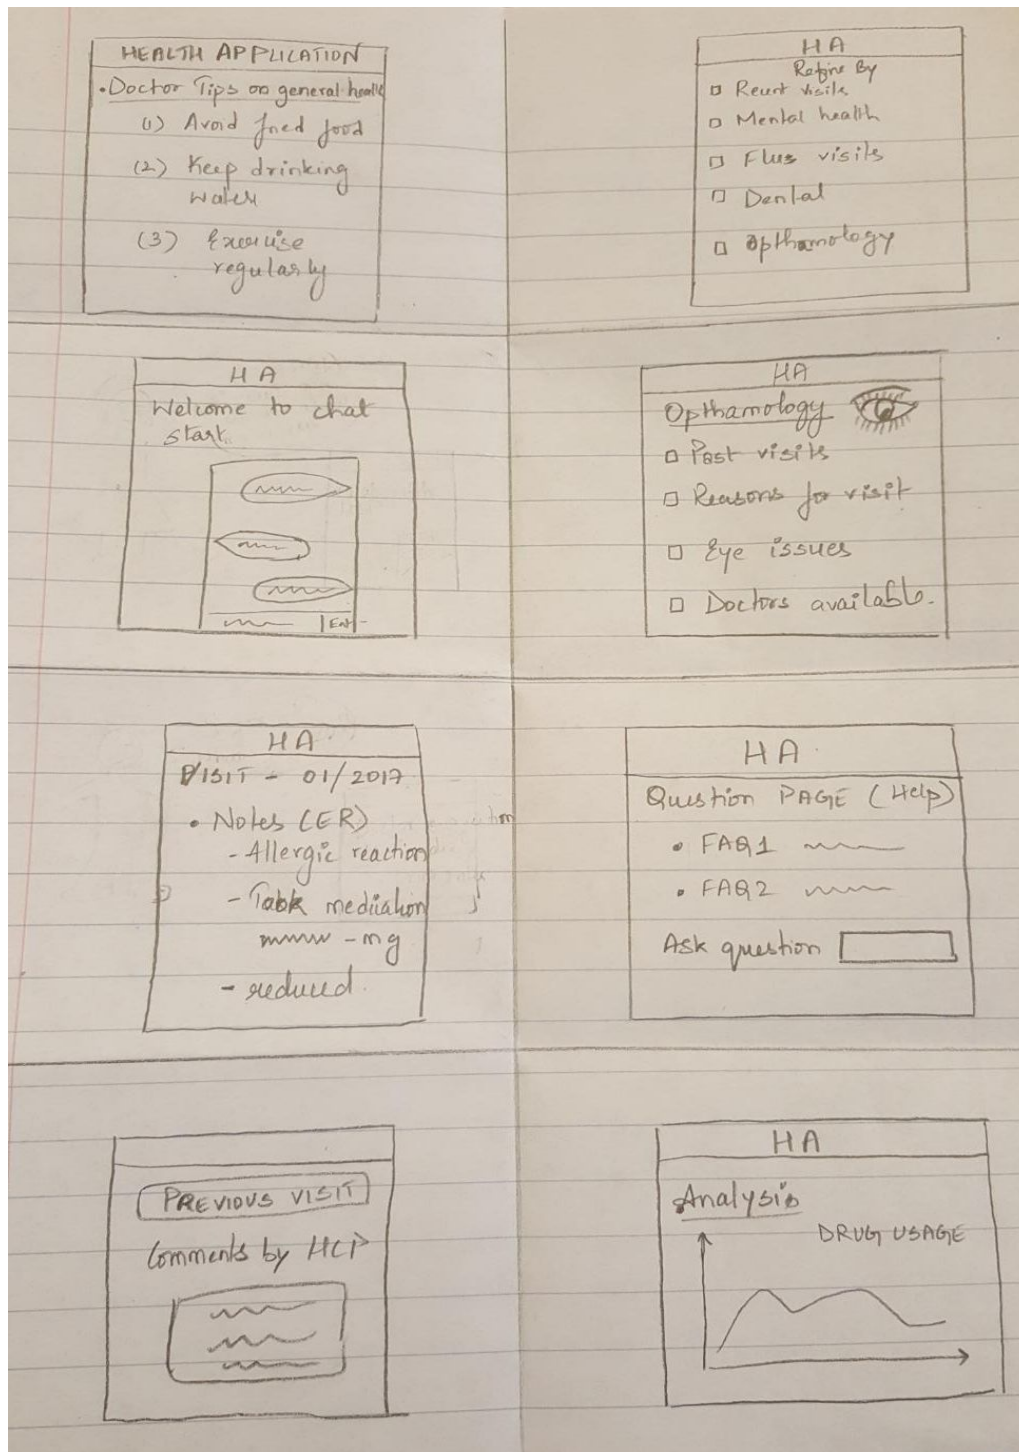 HEALTH APPLICATION
• Doctor Tips on general health
(1) Avoid fried food
(2) Keep drinking
water
(3) Exercise
regularly
HA
Refine By
Recent visits
Mental health
Flus visits
Dental
Opthamology
HA
Welcome to chat
start
Ent
HA
Opthamology
Past visits
Reasons for visit
Eye issues
Doctors available.
HA
VISIT - 01/2017
• Notes (ER)
- Allergic reaction
- Took medication
- mg
- reduced.
HA
Question PAGE (Help)
• FAQ1
• FAQ2
Ask question
PREVIOUS VISIT
Comments by HCP
HA
Analysis
DRUG USAGE